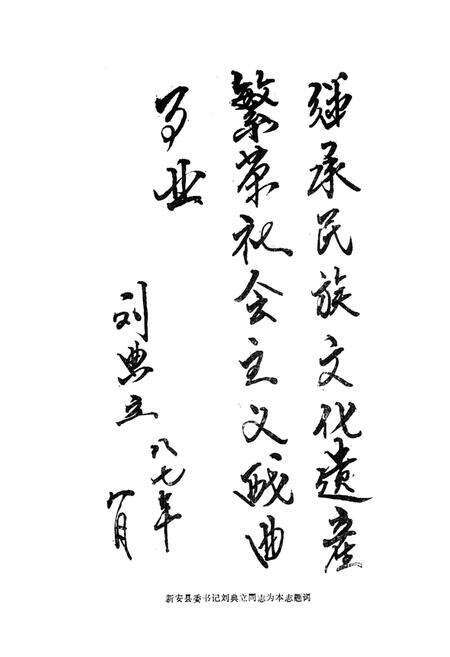 继承民族文化遗产
繁荣社会主义戏曲
事业
刘典立
八七年
八月
新安县委书记刘典立同志为本志题词